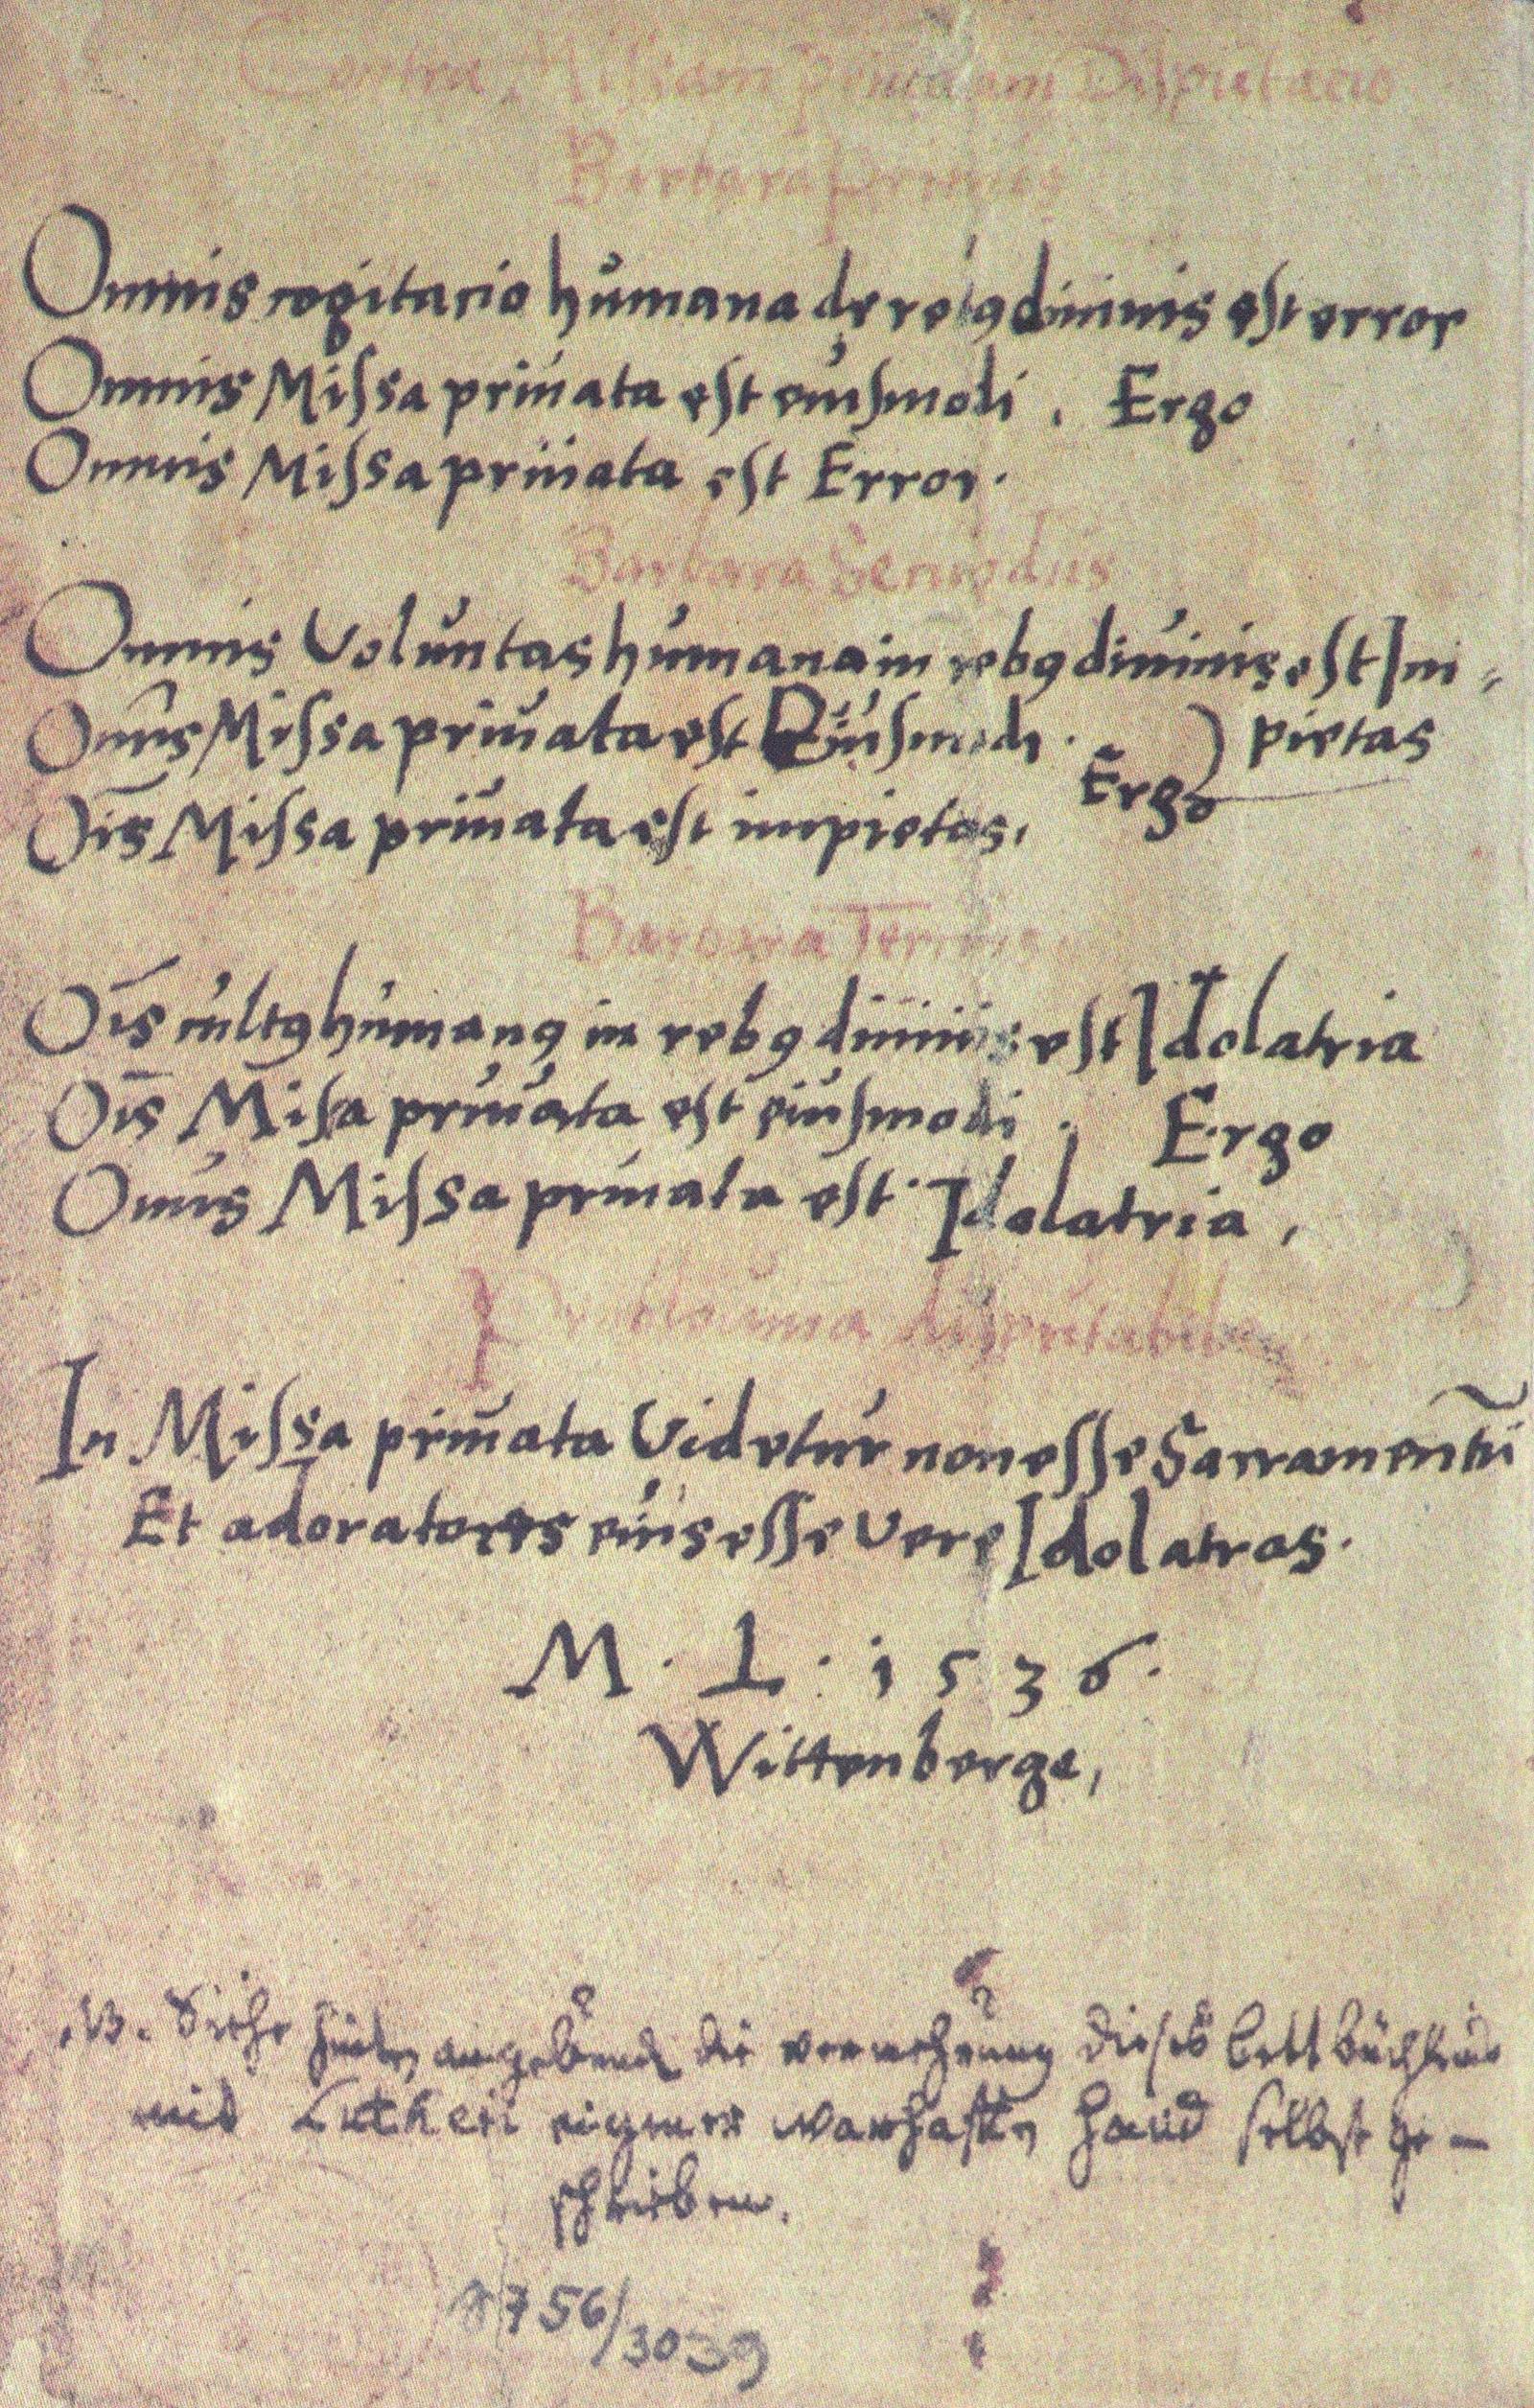 Contra Missam privatam Disputacio
Barbara primus
Omnis cogitacio humana de rebꝰ divinis est error
Omnis Missa priuata est eiusmodi . Ergo
Omnis Missa priuata est Error.
Barbara Secundus
Omnis Voluntas humana in rebꝰ diuinis est Im⸗
Omīs Missa priuata est Eiusmodi . ) pietas
Ergo
Oīs Missa priuata est impietas,
Barbara Tercius
Oīs cultꝰ humanꝰ in rebꝰ diuinis est Idolatria
Oīs Misa priuata est eiusmodi . Ergo
Omīs Missa priuata est Idolatria ,
Problema disputabile
In Missa priuata Videtur non esse Sacramentū
Et adoratores eius esse vere Idolatras.
M . L . 1536.
Wittenberge,
NB. Siehe hinten die dieses bettbüchleins
mit Lutheri eigener warhafften Hand selbst ge-
schrieben.
8756/3039